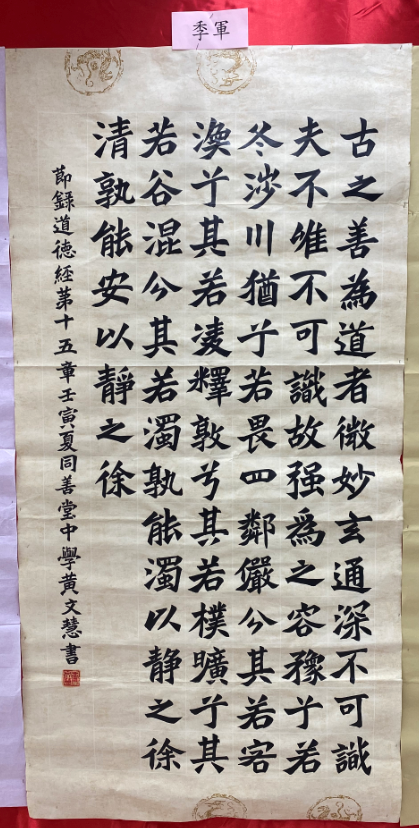 季軍
古之善為道者微妙玄通深不可識
夫不唯不可識故强為之容豫兮若
冬涉川猶兮若畏四鄰儼兮其若客
渙兮其若凌釋敦兮其若樸曠兮其
若谷混兮其若濁孰能濁以靜之徐
清孰能安以靜之徐
節錄道德經第十五章壬寅夏同善堂中學黃文慧書